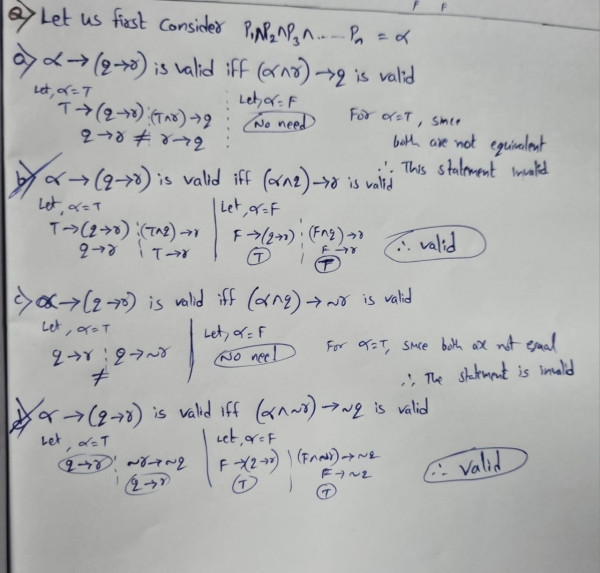 Q) Let us first consider P₁∧P₂∧P₃∧..... Pₙ = α
a) α → (q→r) is valid iff (α∧r) → q is valid
Let, α = T
T → (q→r) (T∧r) → q
q→r ≠ r→q
Let, α = F
No need
For α=T, since
both are not equivalent
∴ This statement invalid
b) α → (q→r) is valid iff (α∧q) → r is valid
Let, α=T
T → (q→r) (T∧q) → r
q→r T→r
Let, α=F
F → (q→r) (F∧q) → r
F → r
T T
∴ valid
c) α → (q→r) is valid iff (α∧q) → ~r is valid
Let, α=T
q→r q→~r
≠
Let, α=F
No need
For α=T, since both are not equal
∴ The statement is invalid
d) α → (q→r) is valid iff (α∧~r) → ~q is valid
Let, α=T
q→r ~r→~q
q→r
Let, α=F
F → (q→r) (F∧~r) → ~q
F → ~q
T T
∴ valid